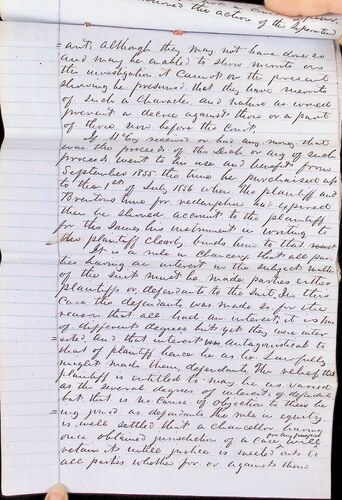 sumed the action of the Separated
= ants. Although they may not have done so
and may be enabled to show merits on
the investigation it cannot on the present
showing be presumed that they have merits
of such a character and nature as would
prevent a decree against them or a part
of them now before the Court.
If McCoy received or has any money that
was the proceeds of this dash or any of such
proceeds went to his use and benefit from
September 1855 the time he purchased up
to the 1st of July 1856 when the plaintiff and
Brentons time for redemption had expired
then he should account to the plaintiff
for the same, his instrument in writing to
the plaintiff clearly binds him to that
It is a rule in Chancery that all par
ties having an interest in the subject matter
of the suit must be made parties either
plaintiffs or defendants to the suit, In this
case the defendants was made so for the
reason that all had an interest, it is true
of different degrees but yet they were inter
= ested and that interest was antagonistical to
that of plaintiff hence he as he Lawfully
might made them defendants, the relief that
plaintiff is entitled to may be as varied
as the several degrees of interest of defendants
but that is no cause of objection to there be
= ing joined as defendants the rule in equity
is well settled that a chancellor having
once obtained jurisdiction of a case for any purpose will
retain it untill justice is meeted out to
all parties whether for or against them